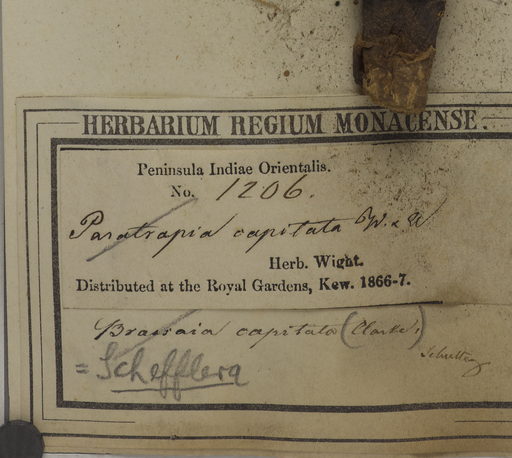 HERBARIUM REGIUM MONACENSE.
Peninsula Indiae Orientalis.
No. 1206.
Paratrapia capitata W. & A
Herb. Wight.
Distributed at the Royal Gardens, Kew. 1866-7.
Brassaia capitata (Clarke)
= Schefflera